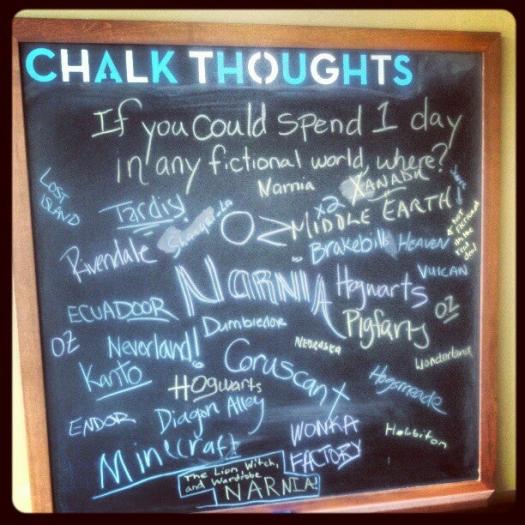 CHALK THOUGHTS
If you could spend 1 day
in any fictional world, where?
Narnia
XANADU
LOST
ISLAND
Tardis!
Shangri-La
OZ
x2
MIDDLE EARTH
Rivendale
Brakebills
HEAVEN
NARNIA
Hogwarts
VULCAN
ECUADOOR
Dumbledor
Pigfarts
OZ
OZ
Neverland!
NEBRASKA
Wonderland
Kanto
Coruscant
HOgwarts
Hogsmeade
ENDOR
Diagon Alley
WONKA
FACTORY
Hobbiton
Minecraft
The Lion, Witch,
and Wardrobe
NARNIA!